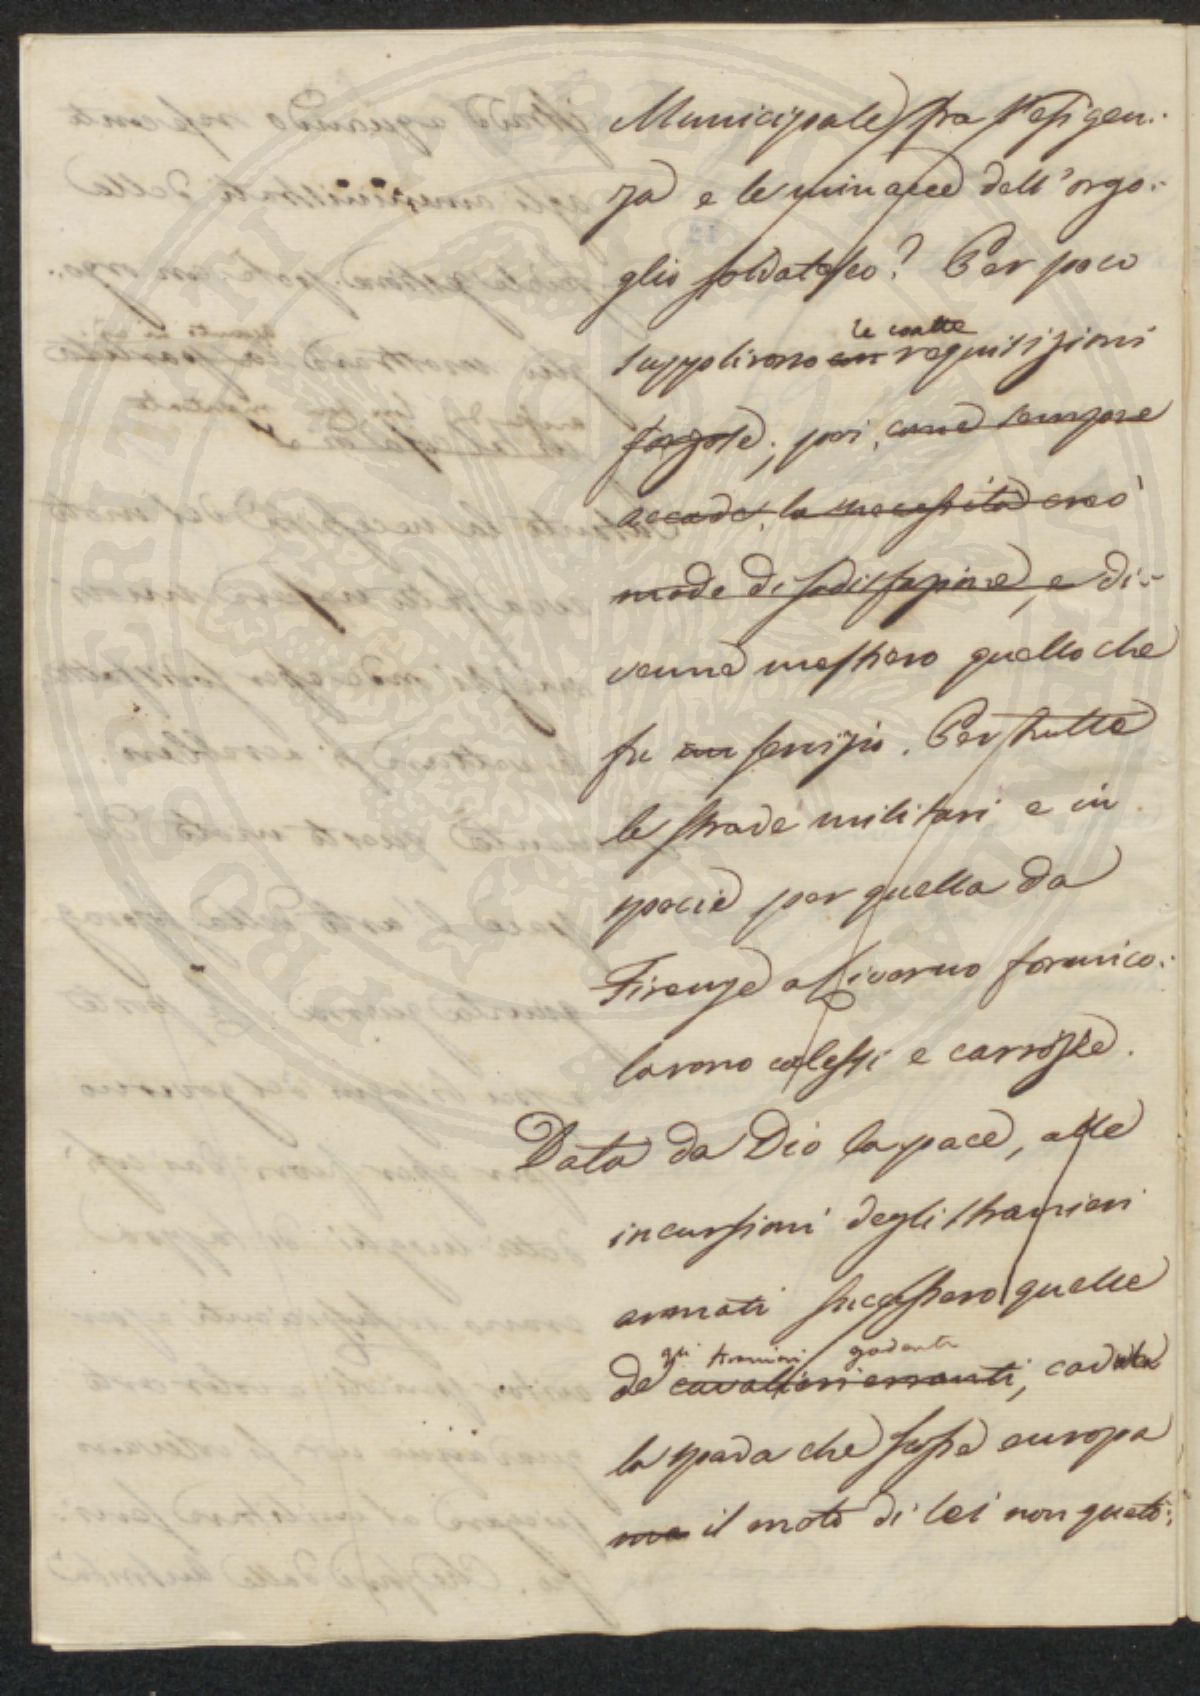 Municipale fra l'esigen:
za e le minacce dell'orgo:
glio soldatesco? Per poco
le coatte
supplirono con requisizioni
forzose; poi, come sempre
accade, la necessità creò
modo di sodisfazione, e di:
venne mestiero quello che
fu un servizio. Per tutte
le strade militari e in
specie per quella da
Firenze a Livorno formico:
larono calessi e carrozze.
Data da Dio la pace, alle
incursioni degli stranieri
armati successero quelle
gli stranieri godenti
de' cavalieri erranti, caduta
la spada che scosse europa
ma il moto di lei non quetò;